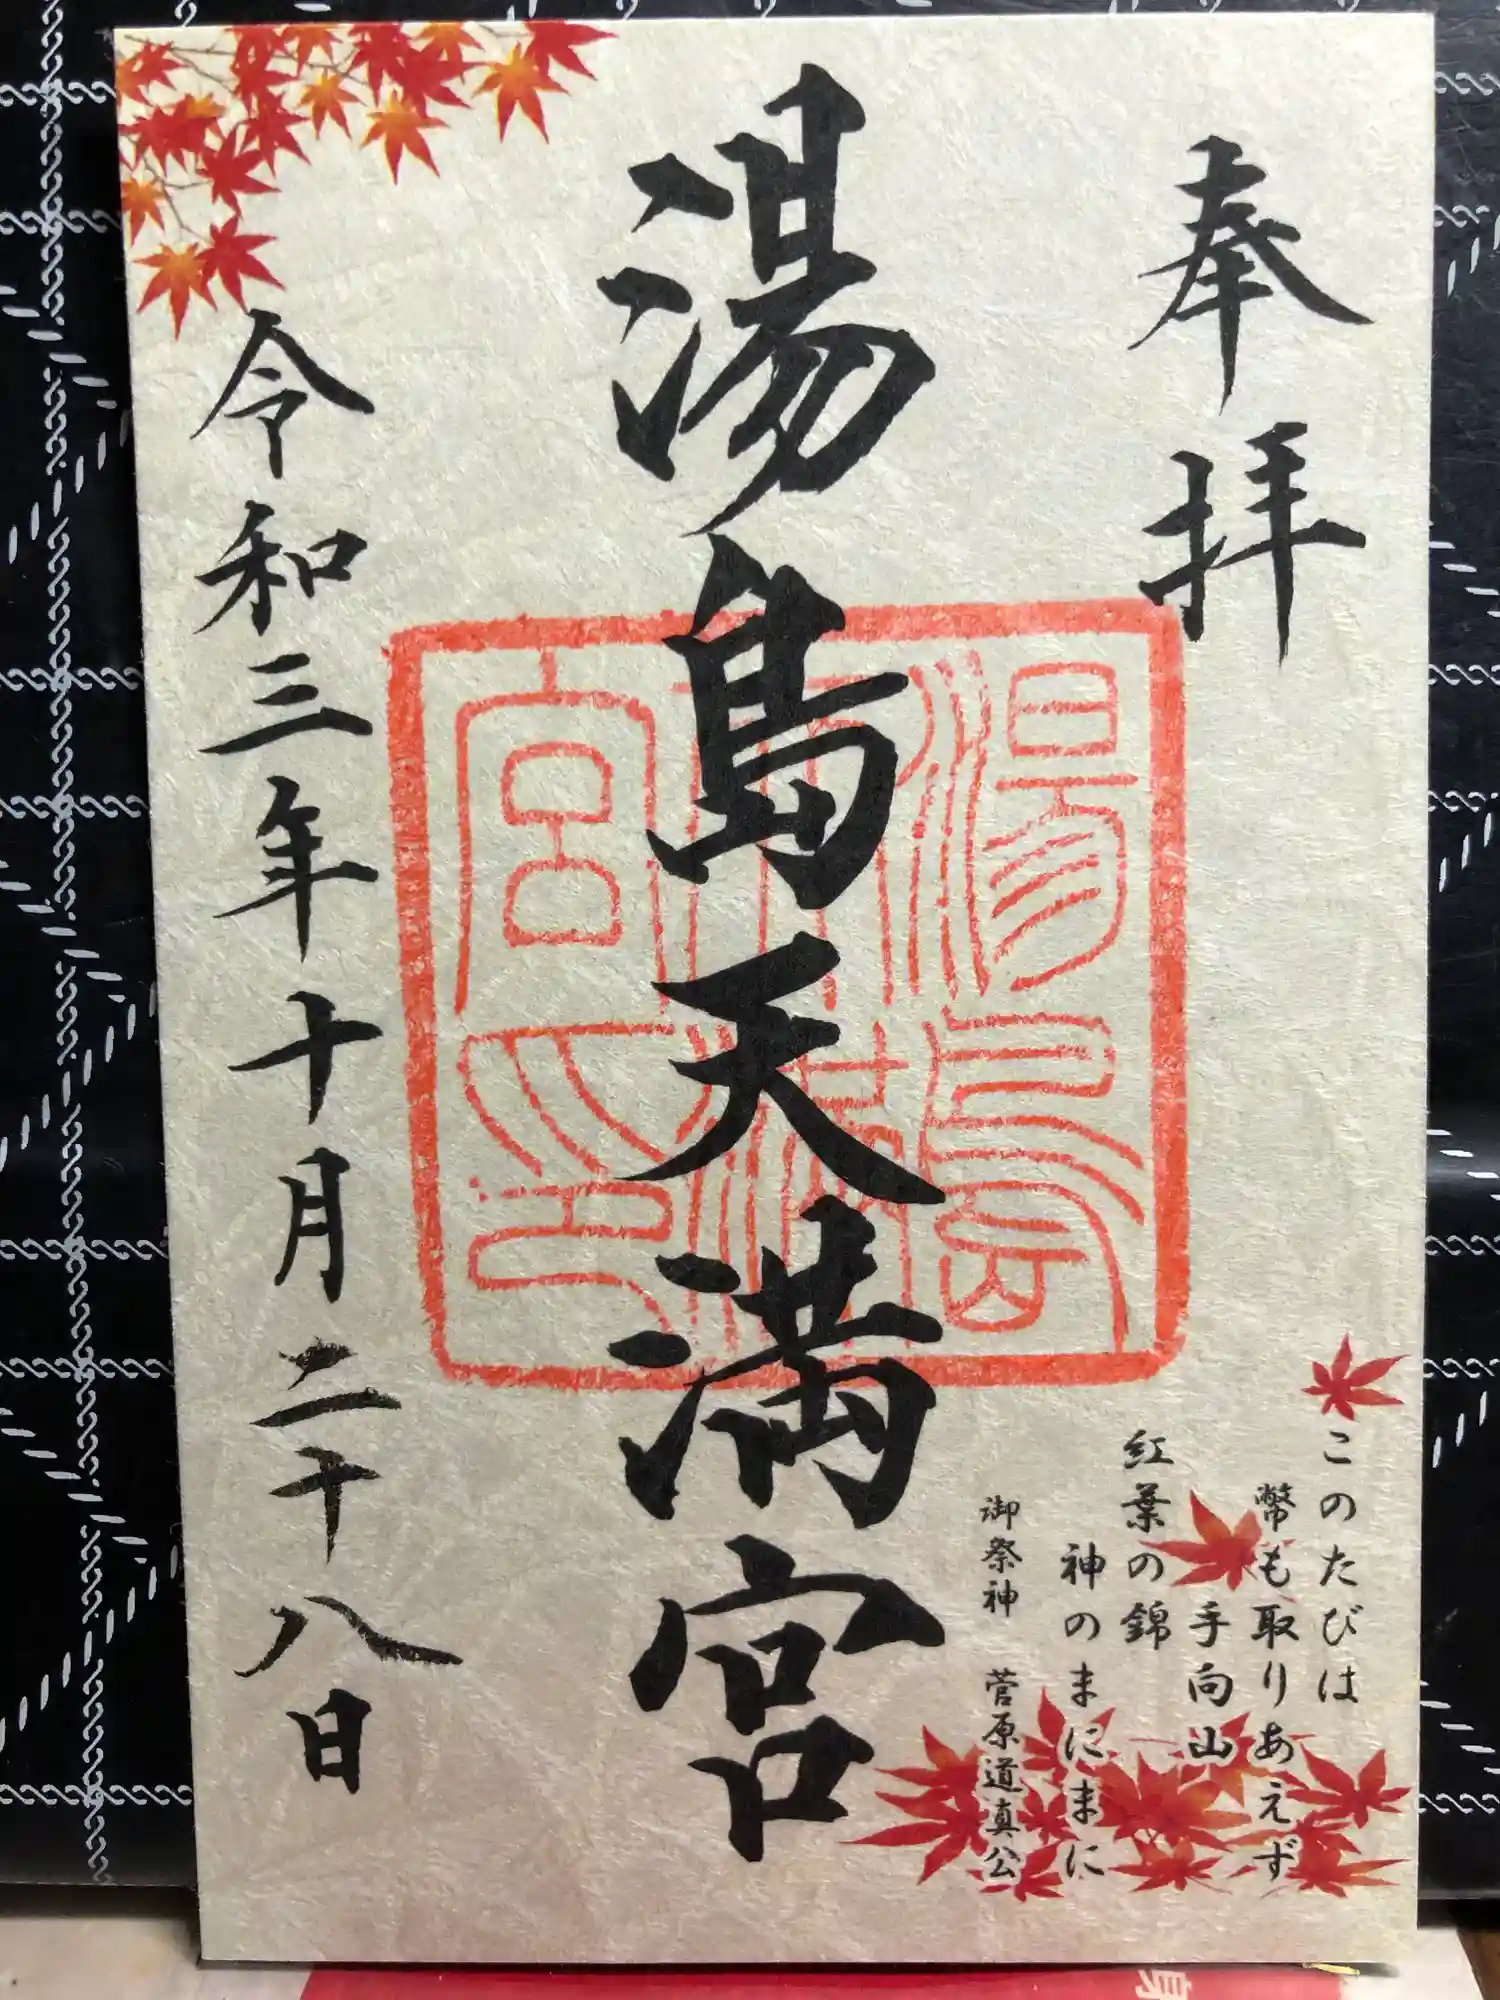 奉拝
湯島天満宮
令和三年十月二十八日
湯島天満宮印
このたびは
幣も取りあえず
手向山
紅葉の錦
神のまにまに
御祭神 菅原道真公
身